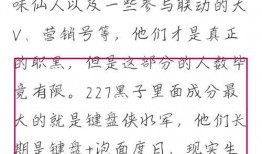 味仙人以及一些参与联动的大
V、营销号等，他们才是真正
的职黑，但是这部分的人数毕
竟有限。227黑子里面成分最
大的就是键盘侠水军，他们长
期是键盘+泡面度日，现实生